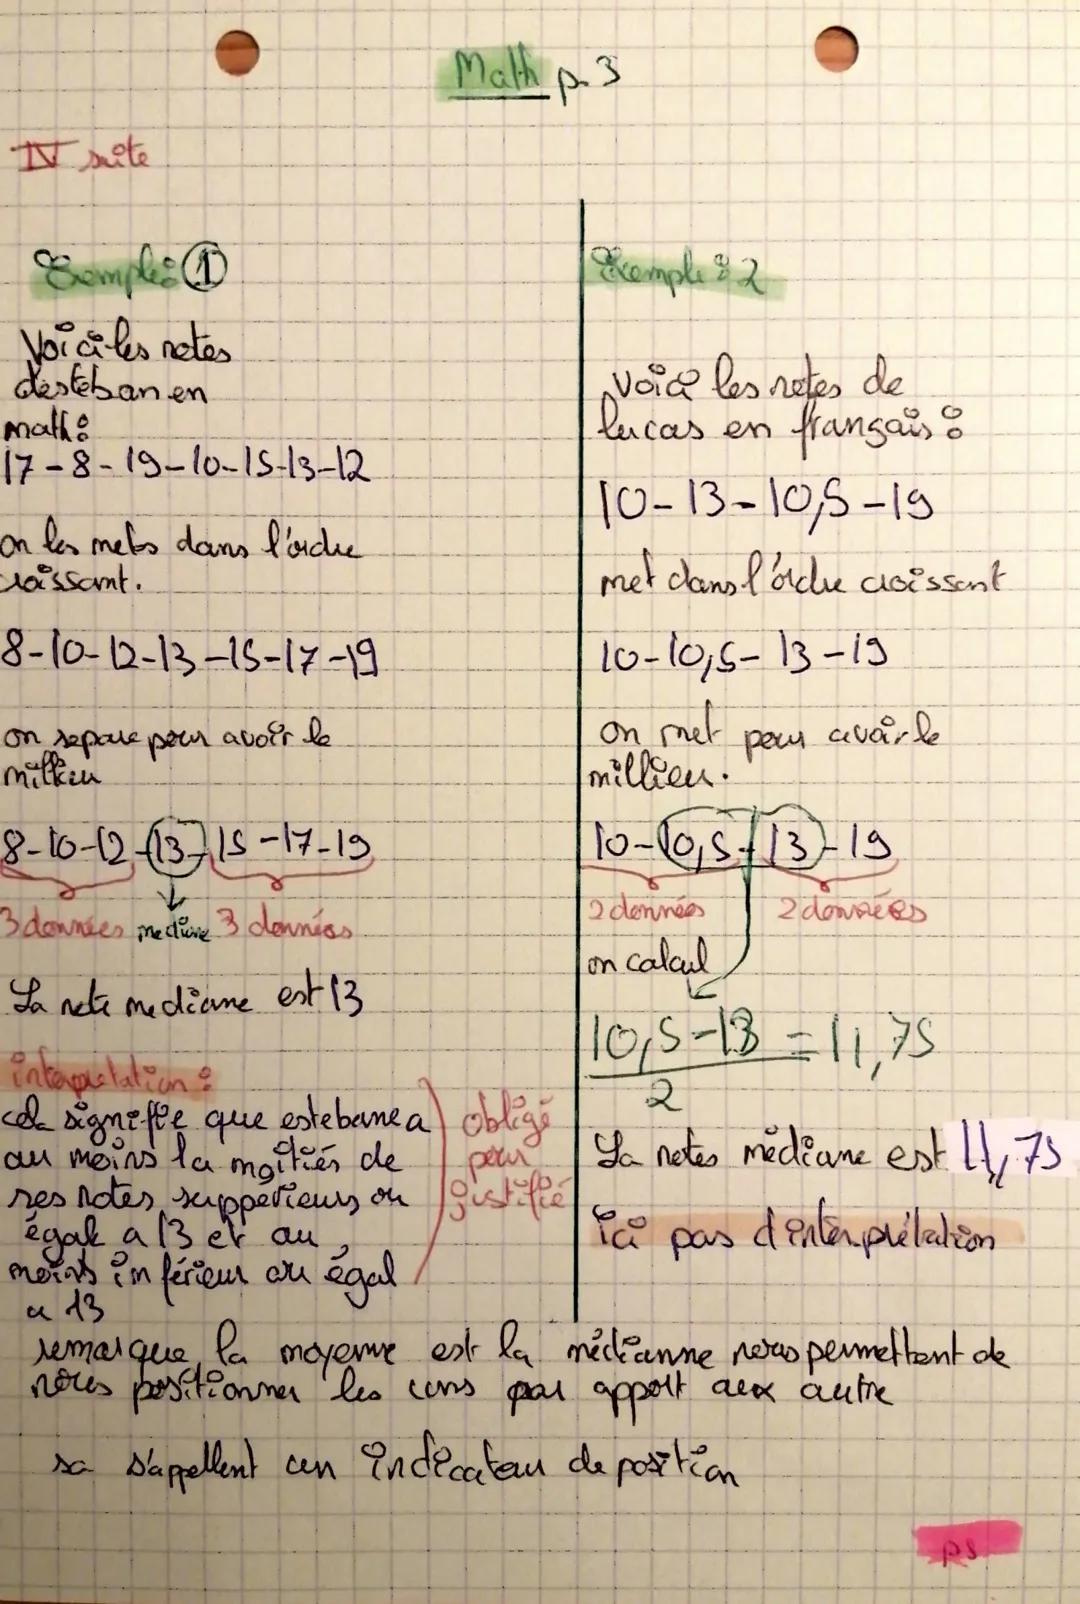 Math p.3
IV suite
Exemple : 1
Voici les notes
d'esteban en
math :
17-8-19-10-15-13-12
on les mets dans l'ordre
croissant.
8-10-12-13-15-17-19
on separe pour avoir le
millieu
8-10-12-13-15-17-19
3 données mediane 3 données
La note mediane est 13
interpretation :
cela signifie que estebane a
au moins la moitiés de
ses notes suppérieurs ou
égale a 13 et au
moins inférieur ou égal
a 13
obligé
pour
justifié
Exemple : 2
Voici les notes de
lucas en français :
10-13-10,5-19
met dans l'ordre croissant
10-10,5-13-19
on met pour avoir le
millieu.
10-10,5-13-19
2 données 2 données
on calcul
10,5-13 = 11,75
2
La notes médiane est 11,75
ici pas d'interprétation
remarque la moyenne est la médianne nous permettent de
nous positionner les uns par apport aux autre
sa s'appellent un indicateur de position